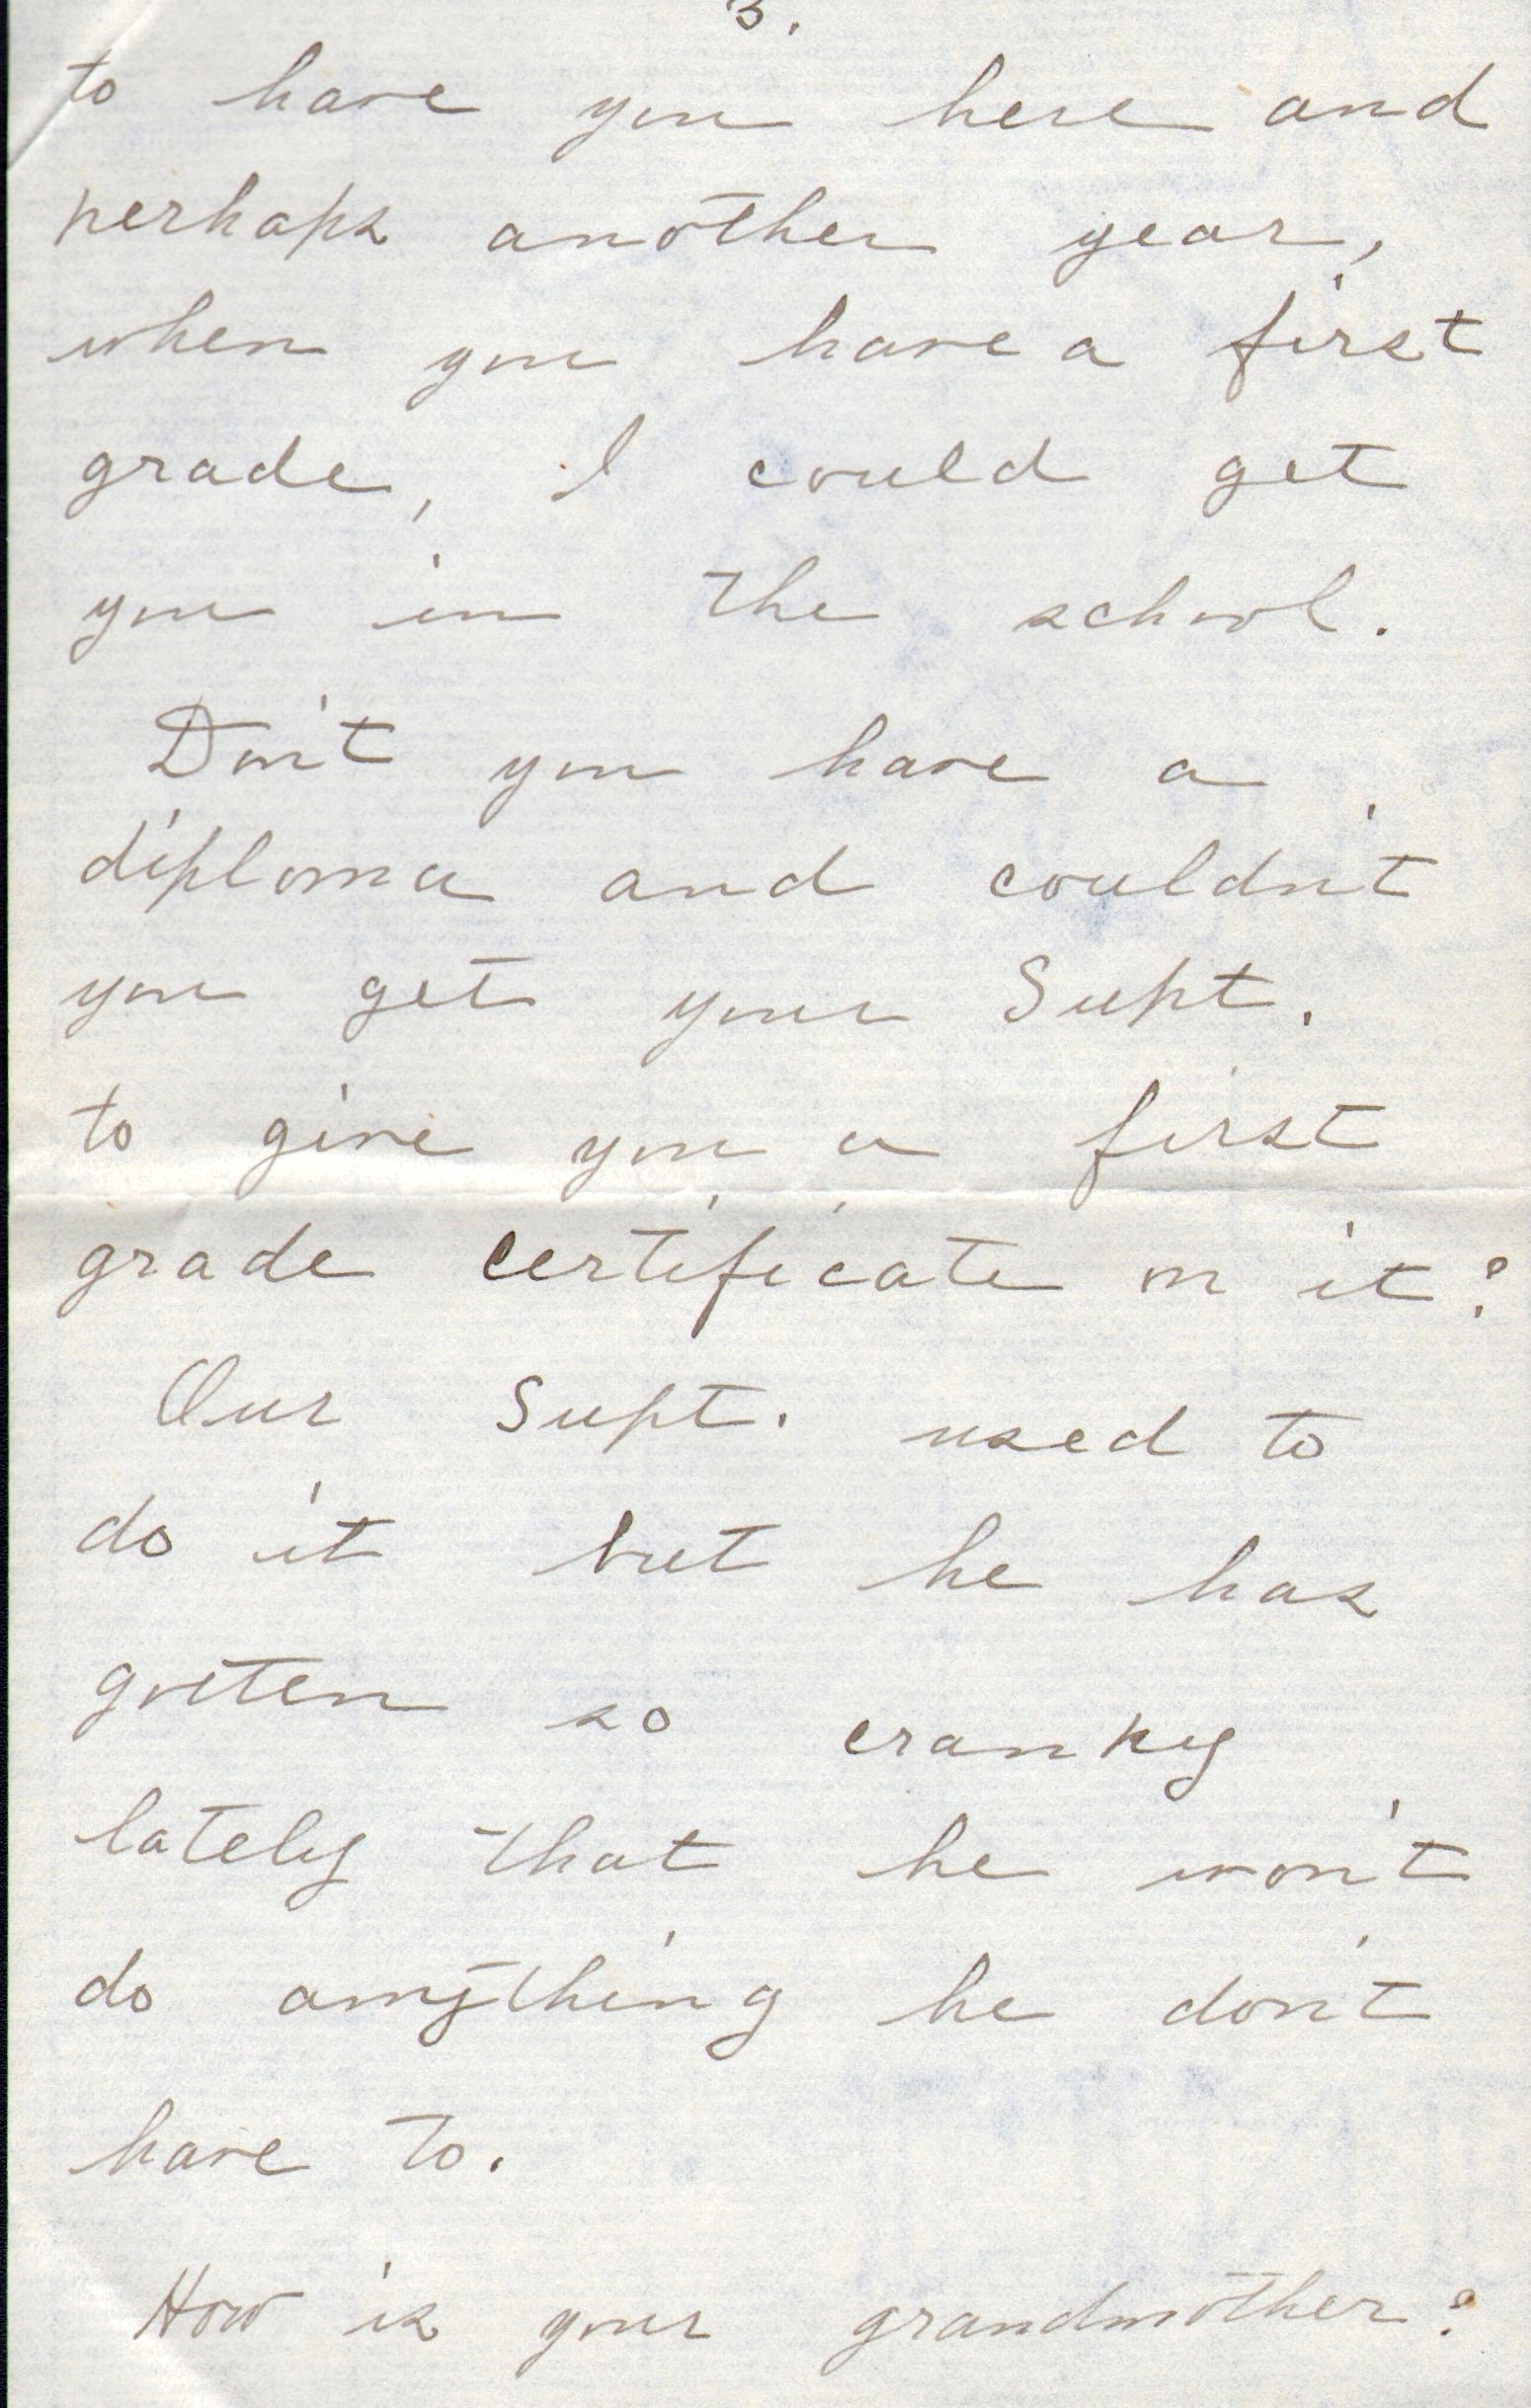 3.
to have you here and
perhaps another year,
when you have a first
grade, I could get
you in the school.
Don't you have a
diploma and couldn't
you get your Supt.
to give you a first
grade certificate on it?
Our Supt. used to
do it but he has
gotten so cranky
lately that he won't
do anything he don't
have to.
How is your grandmother?